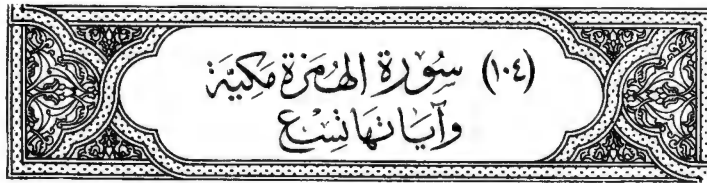 (١٠٤) سُورَة الهُمَزة مَكيّة
وآياتها تِسْع